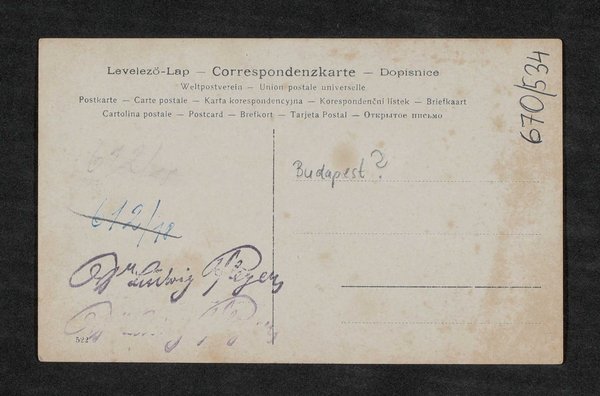 Levelező-Lap — Correspondenzkarte — Dopisnice
Weltpostverein — Union postale universelle
Postkarte — Carte postale — Karta korespondencyjna — Korespondenční listek — Briefkaart
Cartolina postale — Postcard — Brefkort — Tarjeta Postal — Открытое письмо
670/534
Budapest?
612/18
Dr. Ludwig
522